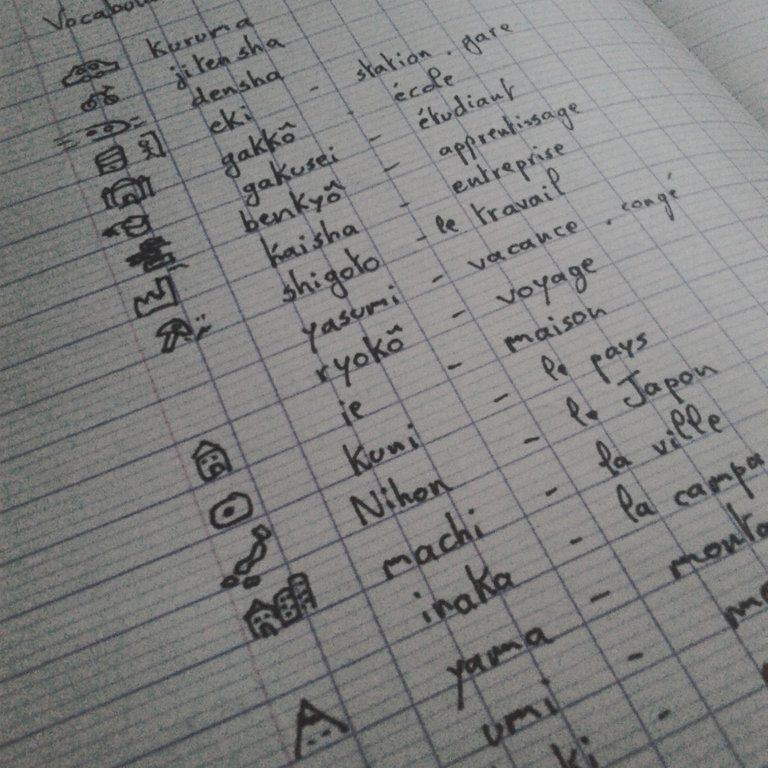 Kuruma
jitensha
densha
eki - station. gare
gakkô - école
gakusei - étudiant
benkyô - apprentissage
kaisha - entreprise
shigoto - le travail
yasumi - vacance. congé
ryokô - voyage
ie - maison
Kuni - le pays
Nihon - le Japon
machi - la ville
inaka - la campa
yama - monta
umi -